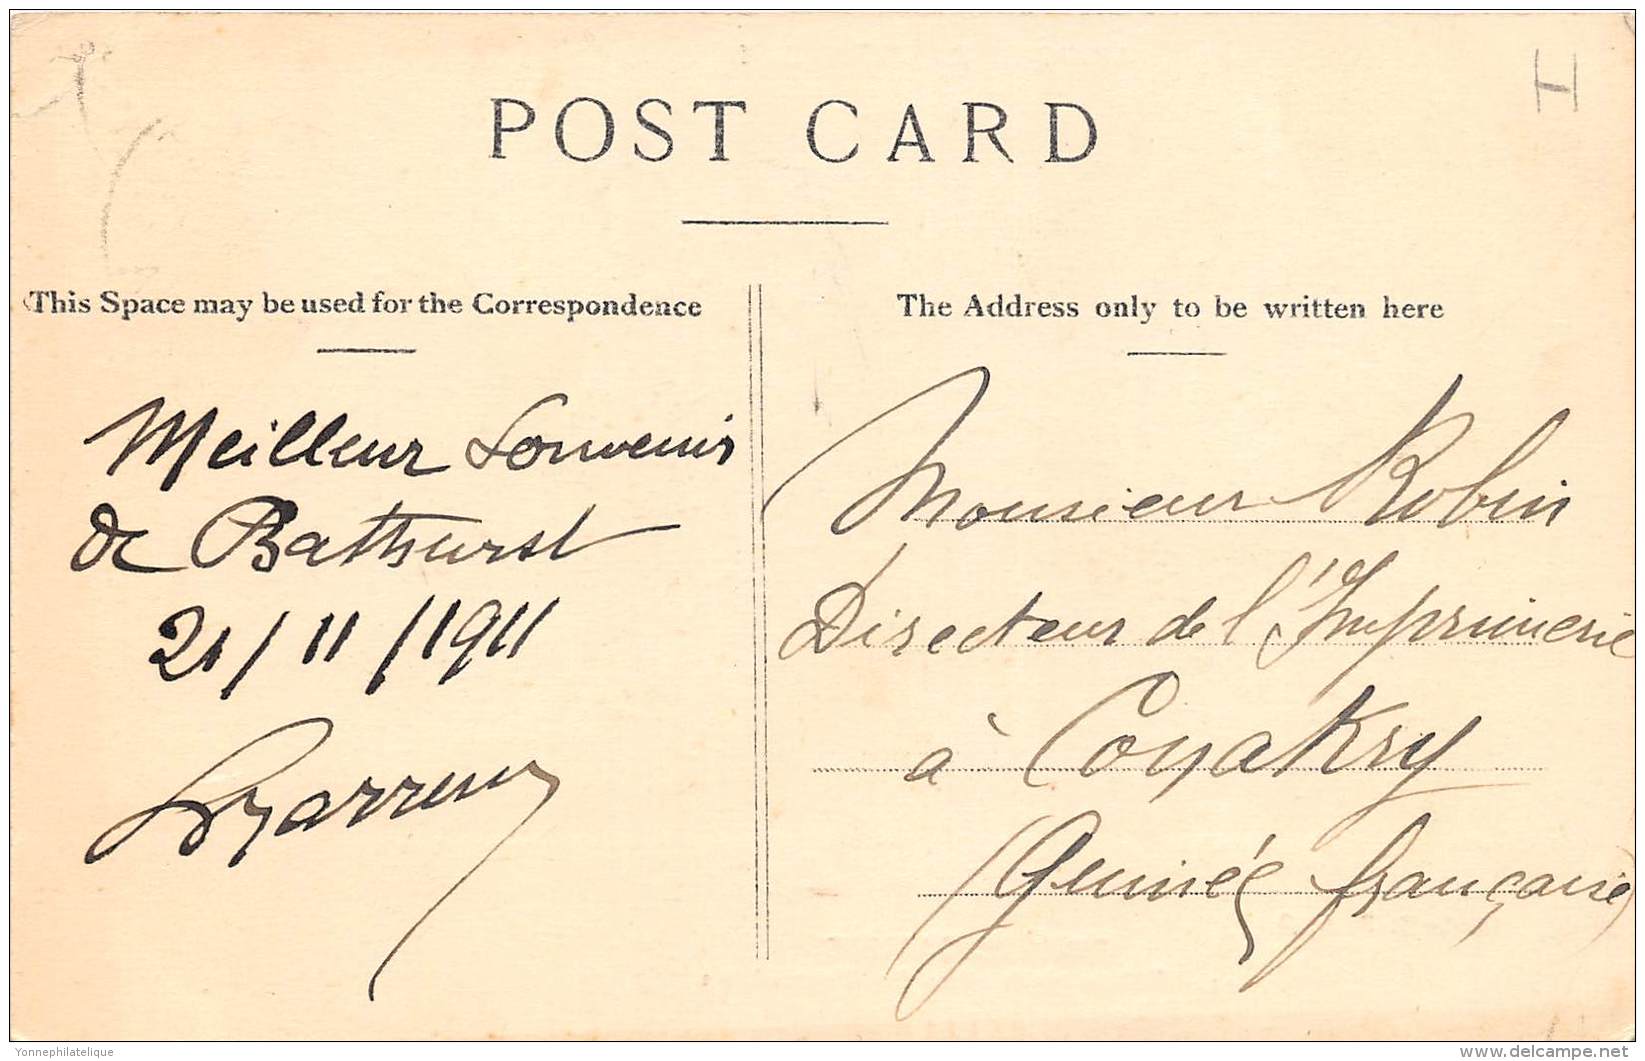 POST CARD
This Space may be used for the Correspondence
Meilleur Souvenir
de Bathurst
21/11/1911
The Address only to be written here
Monsieur Robin
Directeur de l'Imprimerie
à Conakry
(Guinée française)
H
Yonnephilatelique
delcampe.net